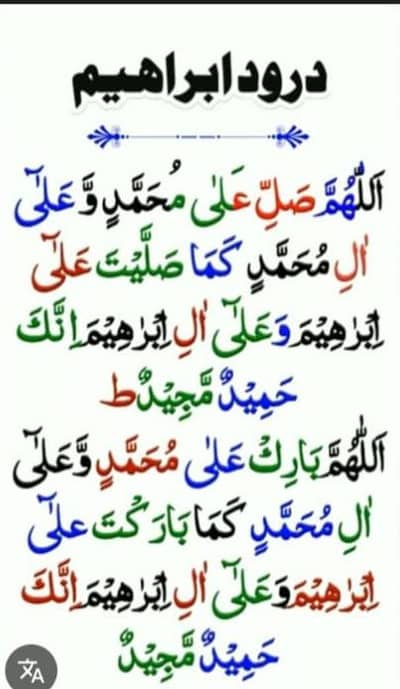 درود ابراهیم
اَللّٰهُمَّ صَلِّ عَلٰى مُحَمَّدٍ وَّ عَلٰٓى
اٰلِ مُحَمَّدٍ كَمَا صَلَّيْتَ عَلٰٓى
اِبْرٰهِيْمَ وَعَلٰٓى اٰلِ اِبْرٰهِيْمَ اِنَّكَ
حَمِيْدٌ مَّجِيْدٌ ط
اَللّٰهُمَّ بَارِكْ عَلٰى مُحَمَّدٍ وَّعَلٰٓى
اٰلِ مُحَمَّدٍ كَمَا بَارَكْتَ علٰٓى
اِبْرٰهِيْمَ وَعَلٰٓى اٰلِ اِبْرٰهِيْمَ اِنَّكَ
حَمِيْدٌ مَّجِيْدٌ